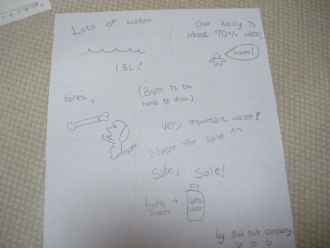 Lots of water
Our body is
about 70% water
water!
1.5L!
bones,
(Brain is too
hard to draw)
Very important water!
Water for sale ^^
Sale! Sale!
water
by Suk Suk company